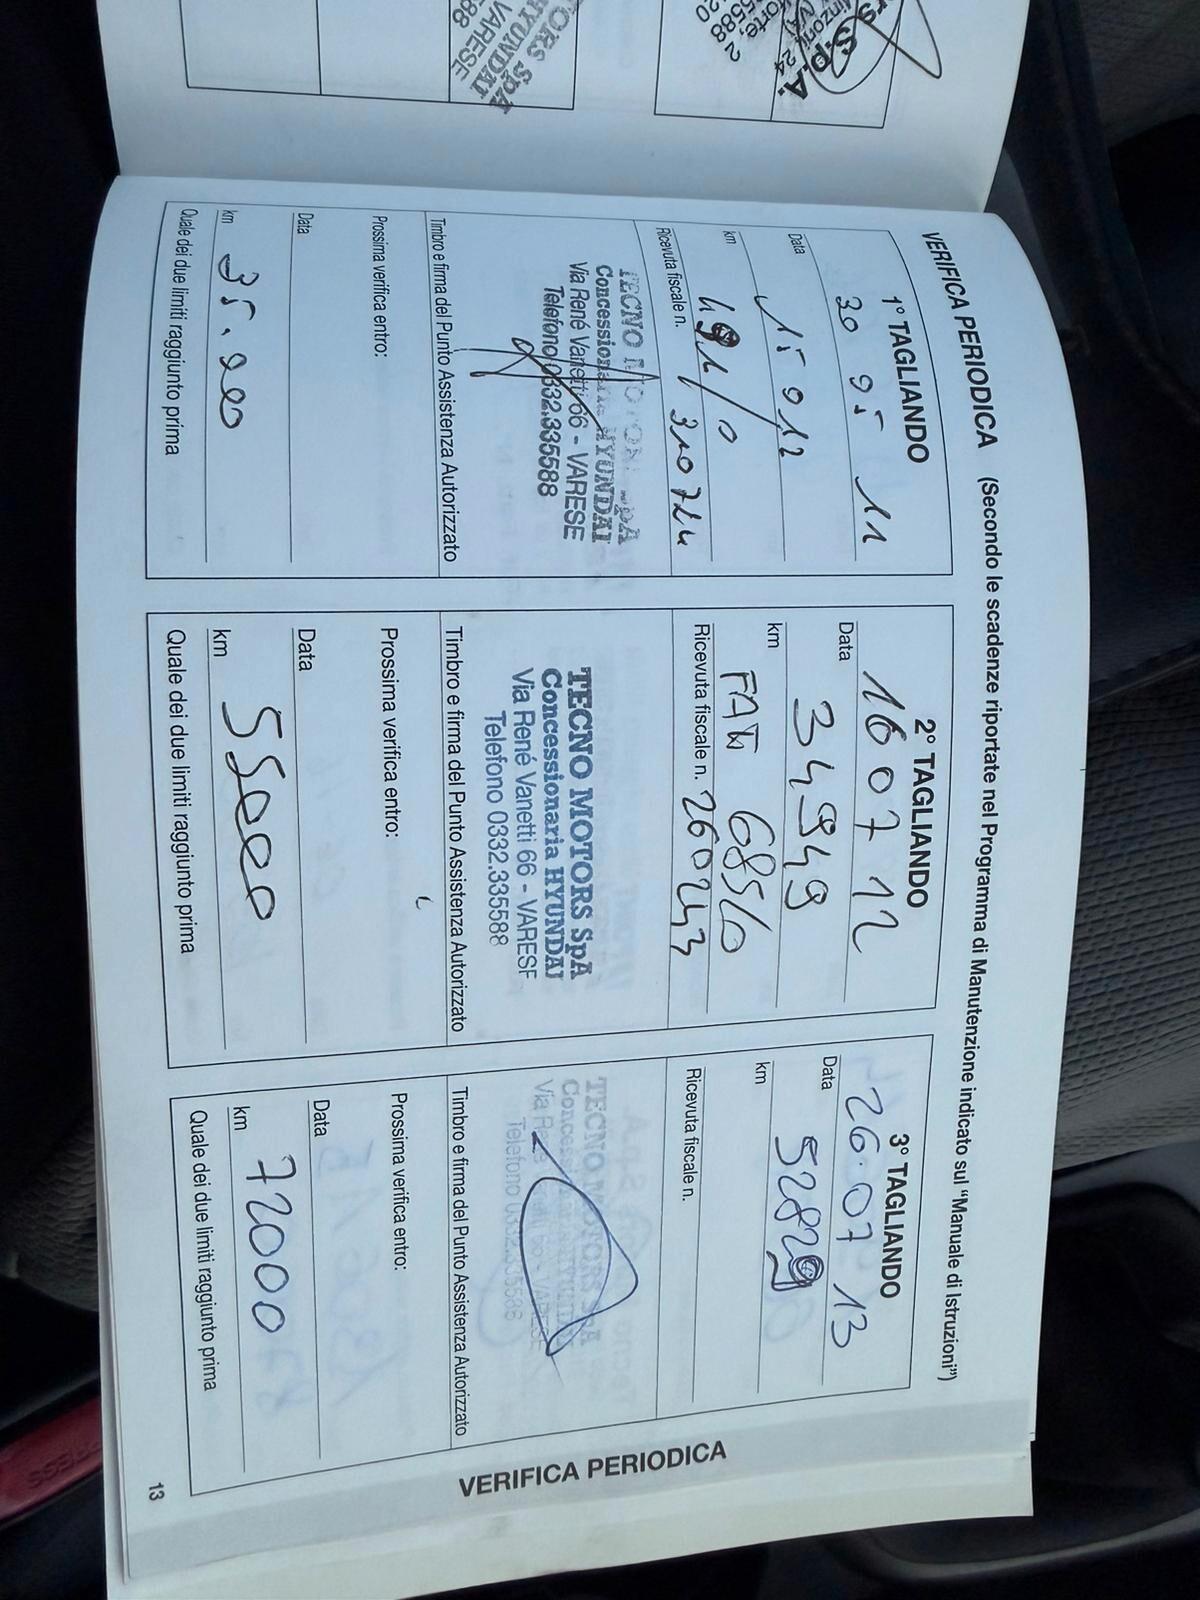 VERIFICA PERIODICA (Secondo le scadenze riportate nel Programma di Manutenzione indicato sul "Manuale di Istruzioni")
1° TAGLIANDO
30 11
Data
15 912
km
Ricevuta fiscale n. 310724
TECNO MOTORS SpA
Concessionaria HYUNDAI
Via René Vanetti 66 - VARESE
Telefono 0332.335588
Timbro e firma del Punto Assistenza Autorizzato
Prossima verifica entro:
Data
km 35.000
Quale dei due limiti raggiunto prima
2° TAGLIANDO
16 07 12
Data
34949
km
FAT 685/0
Ricevuta fiscale n. 260243
TECNO MOTORS SpA
Concessionaria HYUNDAI
Via René Vanetti 66 - VARESE
Telefono 0332.335588
Timbro e firma del Punto Assistenza Autorizzato
Prossima verifica entro:
Data
km 55000
Quale dei due limiti raggiunto prima
3° TAGLIANDO
26.07 13
Data
km
Ricevuta fiscale n.
TECNO MOTORS SpA
Concessionaria HYUNDAI
Via René Vanetti 66 - VARESE
Telefono 0332.335588
Timbro e firma del Punto Assistenza Autorizzato
Prossima verifica entro:
Data
km 72000
Quale dei due limiti raggiunto prima
VERIFICA PERIODICA
13
TORS SpA
HYUNDAI
VARESE
588
S.p.A.
24
5588